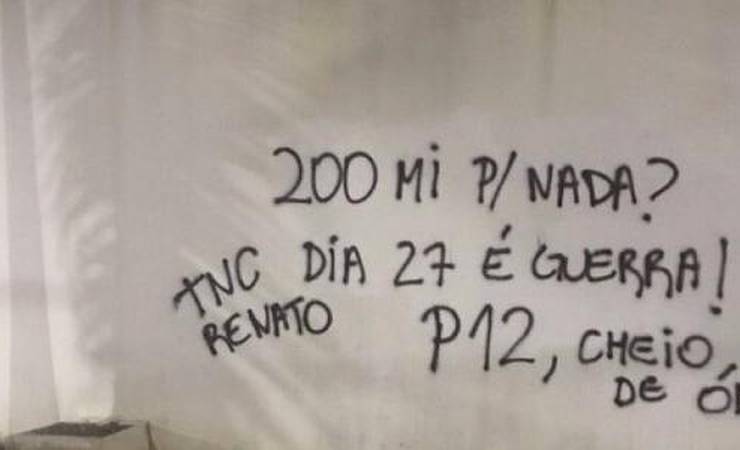 200 Mi P/ NADA?
TNC DiA 27 É GUERRA!
RENATO P12, CHEiO,
DE